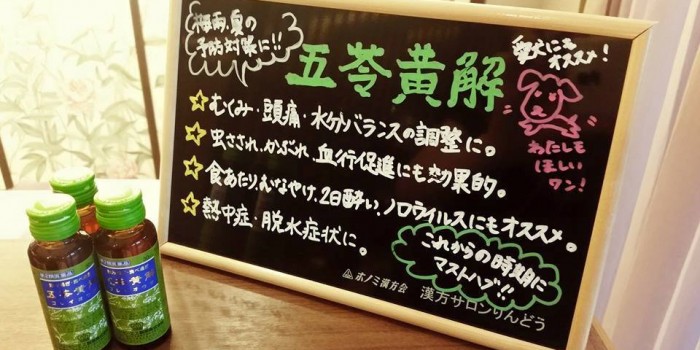 梅雨、夏の
予防対策に!!
五苓黄解
愛犬にも
オススメ!
わたしも
ほしい
ワン!
☆むくみ・頭痛・水分バランスの調整に。
☆虫さされ、かぶれ、血行促進にも効果的。
☆食あたり、むなやけ、2日酔い、ノロウイルスにもオススメ。
☆熱中症・脱水症状に。
これからの時期に
マストハブ!!
ホノミ漢方会
漢方サロンりんどう
第2類医薬品